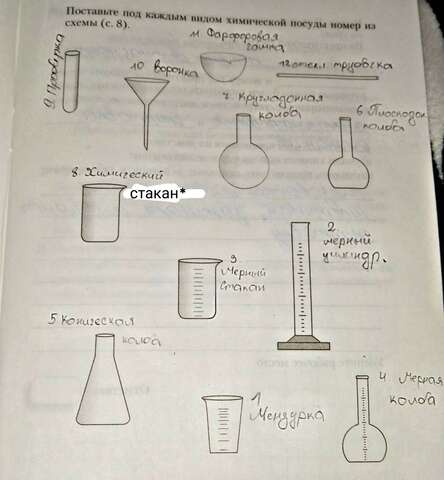 Поставьте под каждым видом химической посуды номер из
схемы (с. 8).
11 Фарфоровая
чашка
9 Пробирка
10 Воронка
12 стекл. трубочка
7. Круглодонная
колба
6. Плоскодон.
колба
8. Химический
стакан*
2.
мерный
цилиндр.
3.
Мерный
Стакан
5. Коническая
колба
1
Мензурка
4. Мерная
колба